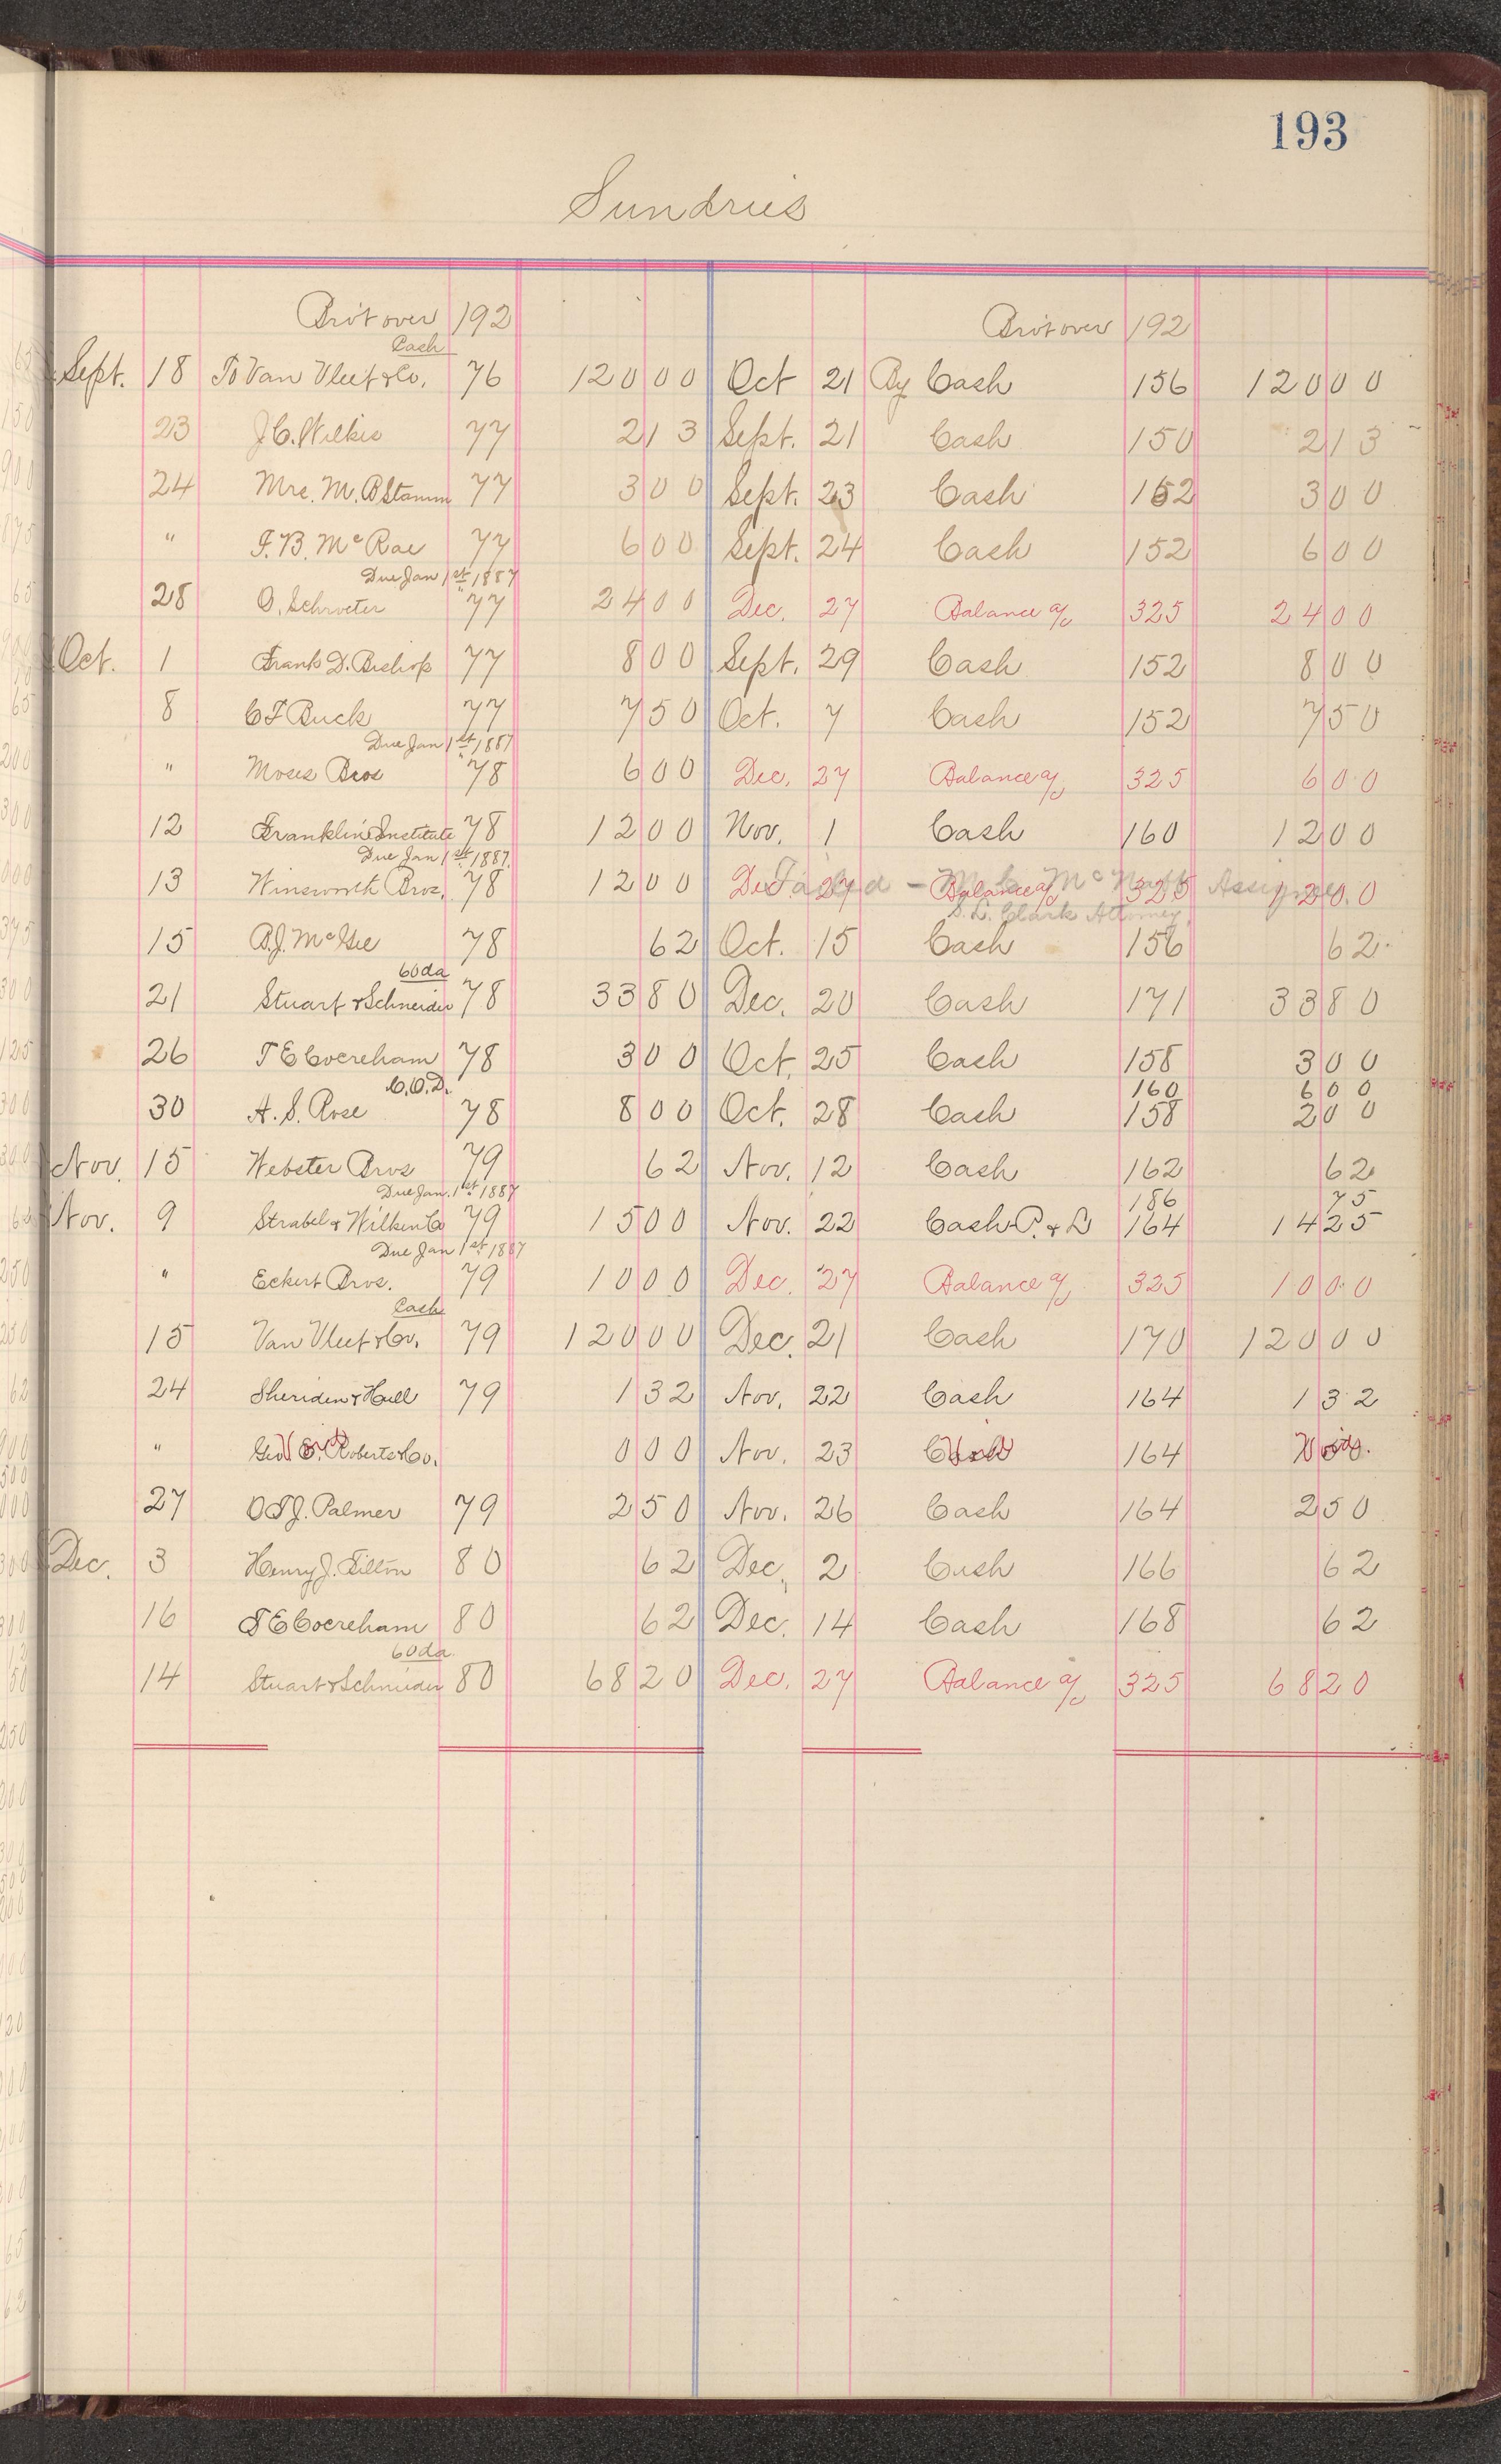 193
Sundries
Bro't over 192 Bro't over 192
Cash
Sept. 18 To Van Vleet & Co. 76 120 00 Oct 21 By Cash 156 120 00
23 J. C. Wilkie 77 2 13 Sept. 21 Cash 150 2 13
24 Mrs. M. B Stamm 77 3 00 Sept. 23 Cash 152 3 00
" F. B. McRae 77 6 00 Sept. 24 Cash 152 6 00
Due Jan 1st 1887
28 O. Schroeter "77 24 00 Dec. 27 Balance a/c 325 24 00
Oct. 1 Frank D. Bishop 77 8 00 Sept. 29 Cash 152 8 00
8 C F Buck 77 7 50 Oct. 7 Cash 152 7 50
Due Jan 1st 1887
" Moses Bros "78 6 00 Dec. 27 Balance a/c 325 6 00
12 Franklin Institute 78 12 00 Nov. 1 Cash 160 12 00
Due Jan 1st 1887.
13 Winsworth Bros. 78 12 00 Dec. 27 Balance a/c 325 12 00
Failed - Assignee
S. L. Clark Attorney
15 B. J. McGee 78 62 Oct. 15 Cash 156 62
60 da
21 Stuart & Schneider 78 33 80 Dec. 20 Cash 171 33 80
26 T E Cocreham 78 3 00 Oct. 25 Cash 158 3 00
C. O. D. 160 6 00
30 A. S. Rose 78 8 00 Oct. 28 Cash 158 2 00
Nov. 15 Webster Bros 79 62 Nov. 12 Cash 162 62
Due Jan. 1st 1887 186 75
Nov. 9 Strabel & Wilken Co 79 15 00 Nov. 22 Cash P. & L 164 14 25
Due Jan 1st 1887
" Eckert Bros. 79 10 00 Dec. 27 Balance a/c 325 10 00
Cash
15 Van Vleet & Co. 79 120 00 Dec. 21 Cash 170 120 00
24 Sheriden & Hull 79 1 32 Nov. 22 Cash 164 1 32
" Geo E. Roberts & Co. Void 0 00 Nov. 23 Cash Void 164 Void.
27 O T J. Palmer 79 2 50 Nov. 26 Cash 164 2 50
Dec. 3 Henry J. Tilton 80 62 Dec. 2 Cash 166 62
16 T E Cocreham 80 62 Dec. 14 Cash 168 62
60 da.
14 Stuart & Schneider 80 68 20 Dec. 27 Balance a/c 325 68 20